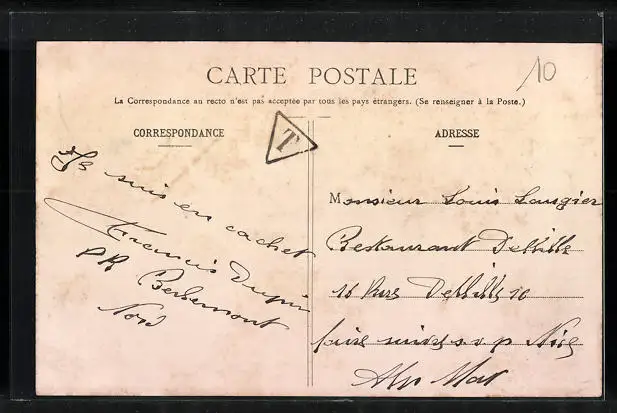 10
CARTE POSTALE
La Correspondance au recto n'est pas acceptée par tous les pays étrangers. (Se renseigner à la Poste.)
CORRESPONDANCE
T
ADRESSE
Je suis en cachet
Francis Dupin
PR Berlemont
Nord
Monsieur Louis Laugier
Restaurant Delille
16 Rue Delille 16
faire suivre s v p Nice
Alp Mar